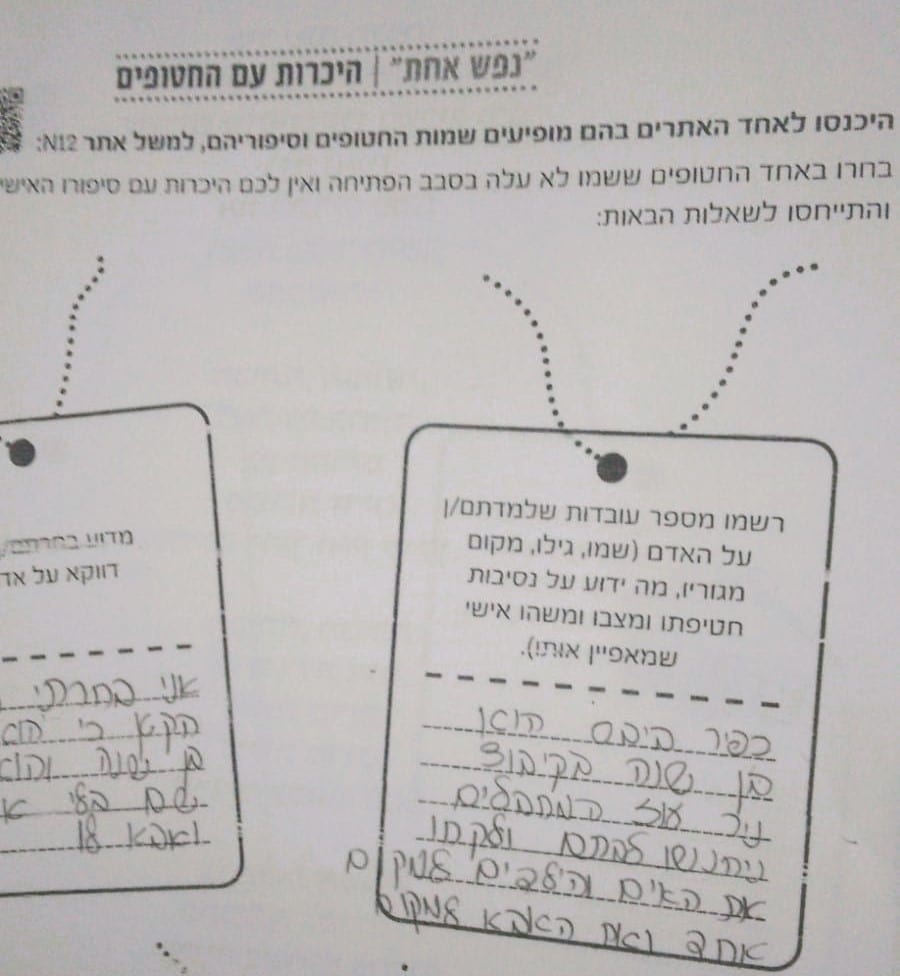 "נפש אחת" | היכרות עם החטופים
היכנסו לאחד האתרים בהם מופיעים שמות החטופים וסיפוריהם, למשל אתר N12:
בחרו באחד החטופים ששמו לא עלה בסבב הפתיחה ואין לכם היכרות עם סיפורו האישי
והתייחסו לשאלות הבאות:
רשמו מספר עובדות שלמדתם/ן
על האדם (שמו, גילו, מקום
מגוריו, מה ידוע על נסיבות
חטיפתו ומצבו ומשהו אישי
שמאפיין אותו).
כפיר ביבס הוא
בן שנה בקיבוץ
ניר עוז המחבלים
ניחנסו לביתם ולקחו
את האים והילדים למקום
אחד ואת האבא למקום
מדוע בחרתם/ן
דווקא על אד
אני בחרתי
דוקא כי הוא
בן שנה והוא
שם בלי א
ואבא לו